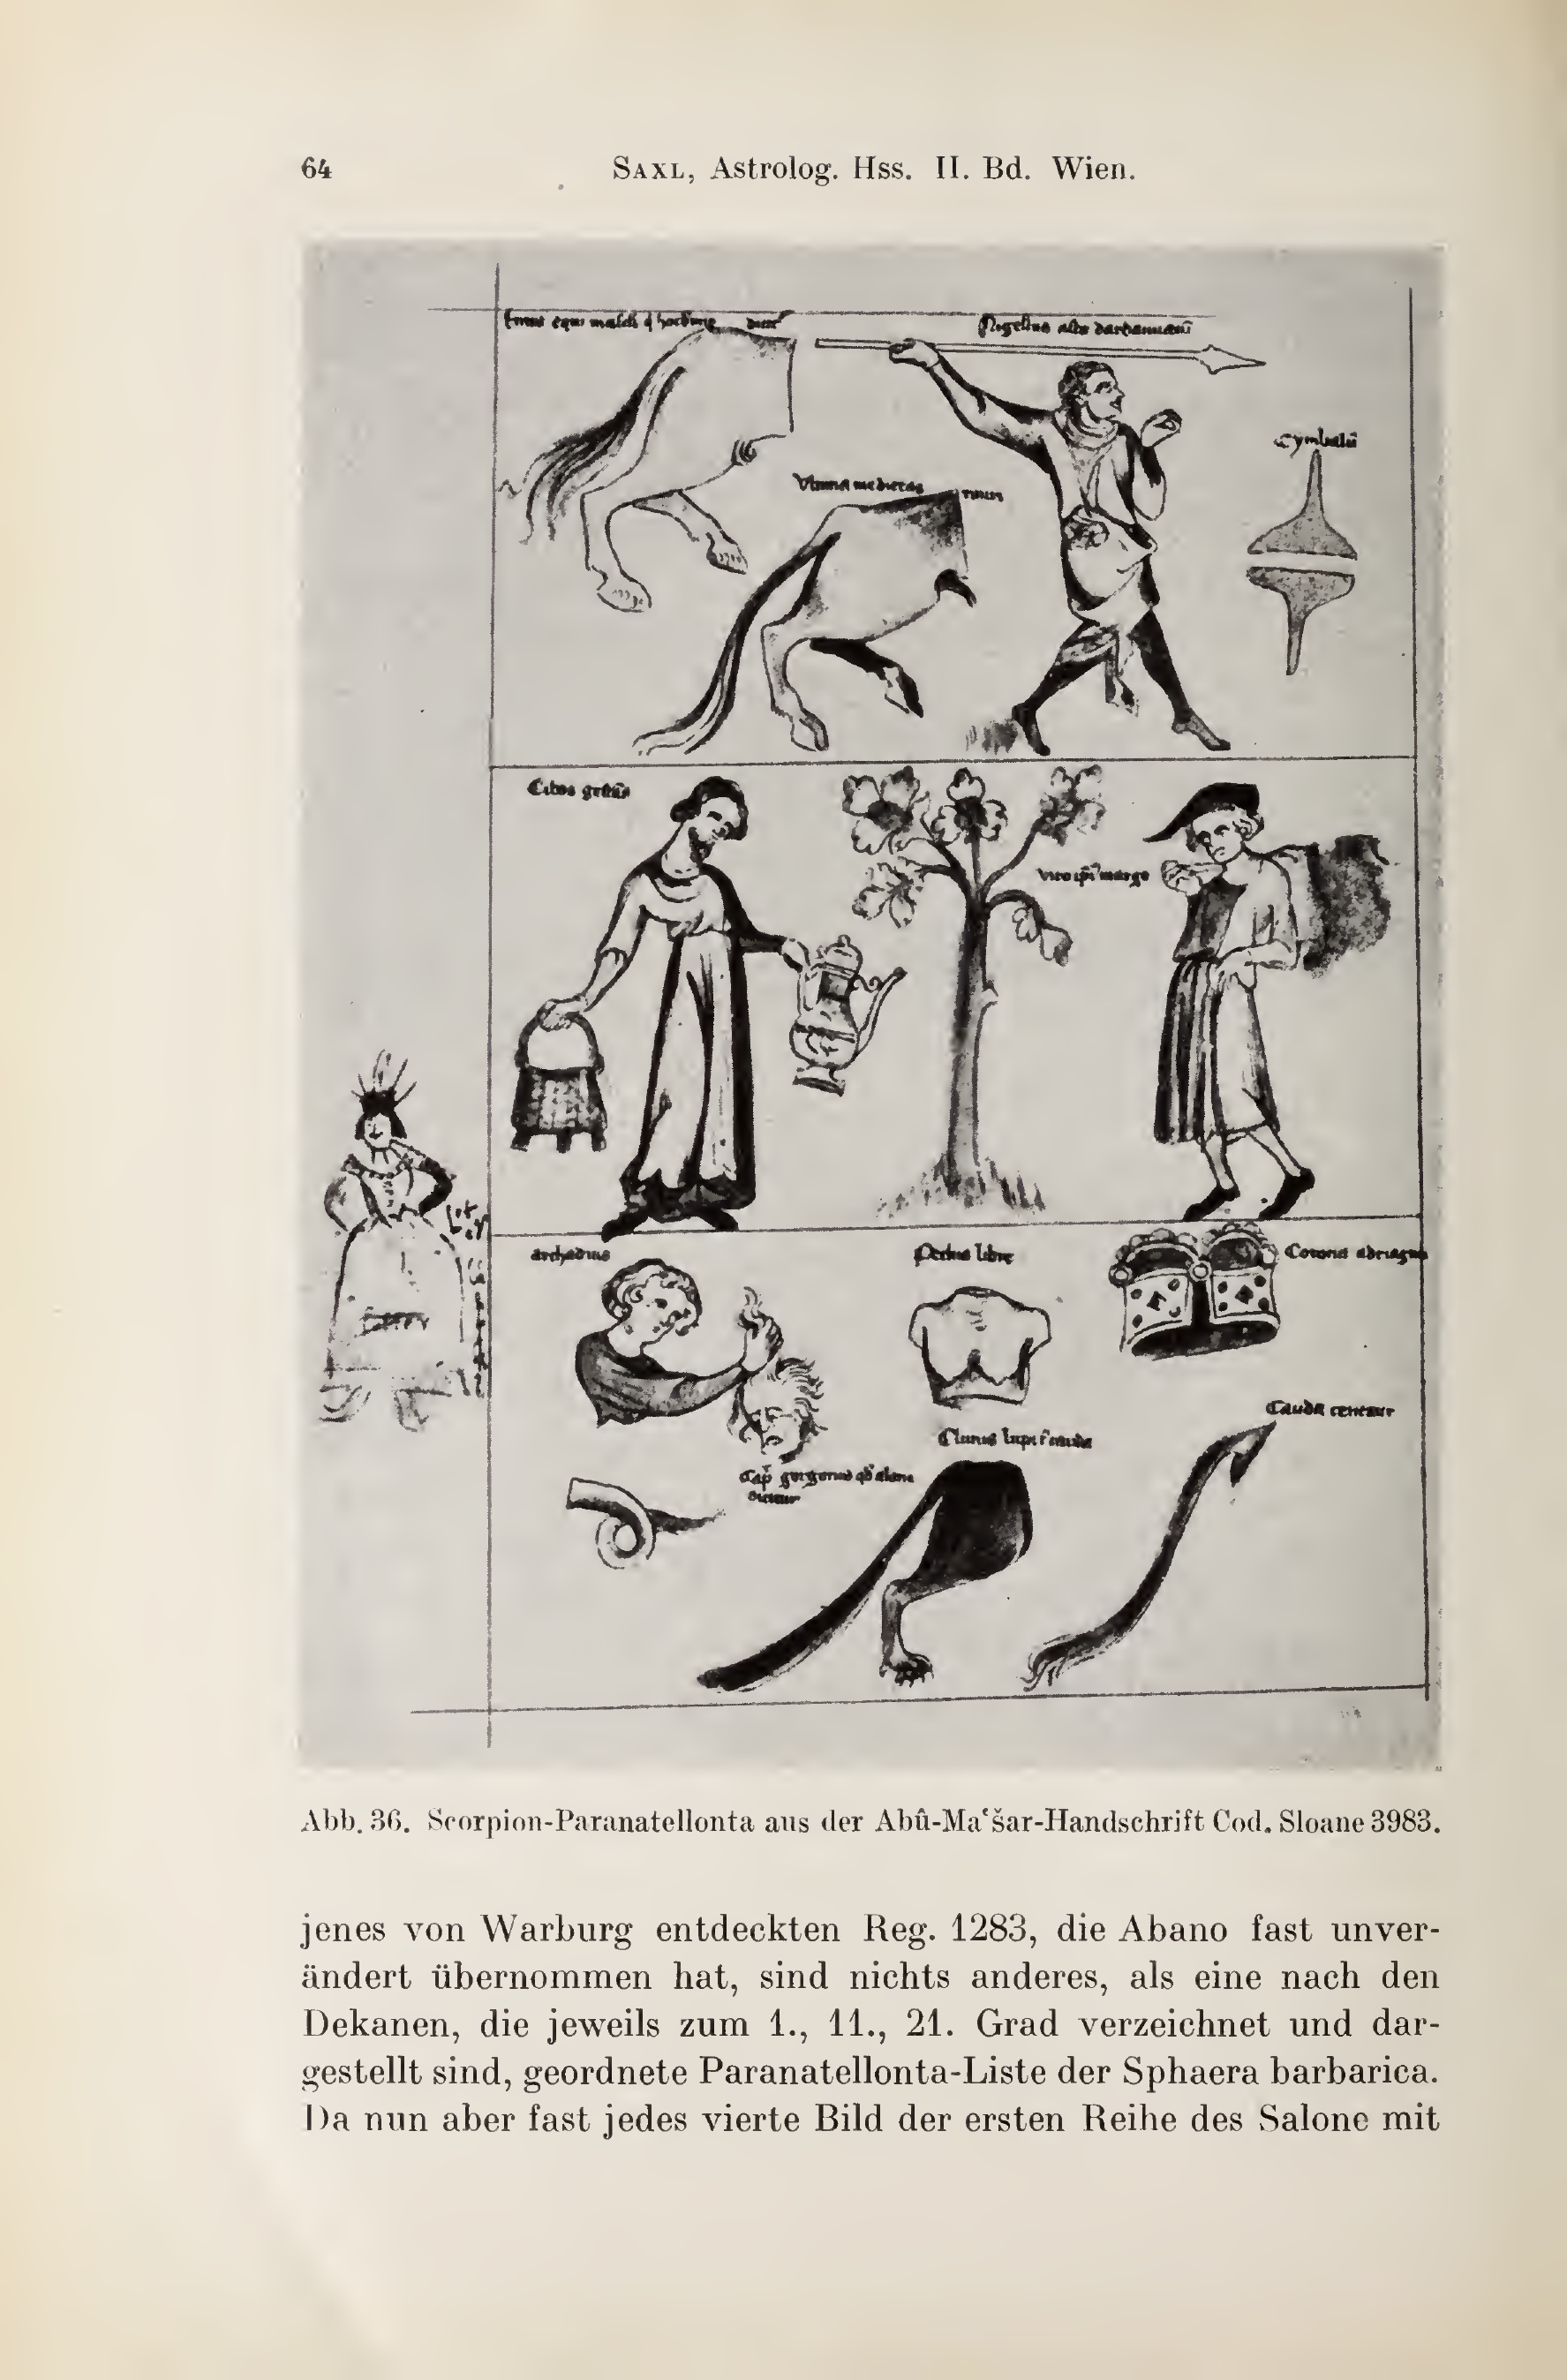 64
SAXL, Astrolog. Hss. II. Bd. Wien.
equi
Nigellus alio
Cymbalū
Ultima medietas
Cibos
archadius
Pectus libre
Corona
Cauda
Clunis lupi
Abb. 36. Scorpion-Paranatellonta aus der Abû-Maʿšar-Handschrift Cod. Sloane 3983.
jenes von Warburg entdeckten Reg. 1283, die Abano fast unver-
ändert übernommen hat, sind nichts anderes, als eine nach den
Dekanen, die jeweils zum 1., 11., 21. Grad verzeichnet und dar-
gestellt sind, geordnete Paranatellonta-Liste der Sphaera barbarica.
Da nun aber fast jedes vierte Bild der ersten Reihe des Salone mit